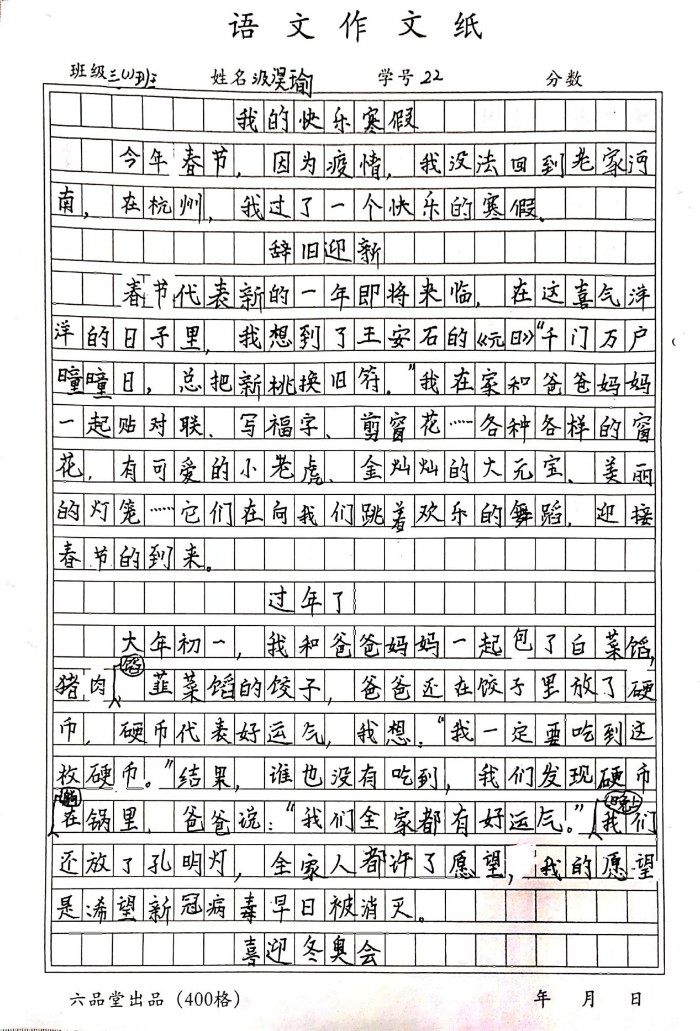 语文作文纸
班级三(1)班 姓名汲淏瑜 学号22 分数
我的快乐寒假
今年春节,因为疫情,我没法回到老家河
南,在杭州,我过了一个快乐的寒假。
辞旧迎新
春节代表新的一年即将来临,在这喜气洋
洋的日子里,我想到了王安石的《元日》“千门万户
曈曈日,总把新桃换旧符。”我在家和爸爸妈妈
一起贴对联、写福字、剪窗花……各种各样的窗
花,有可爱的小老虎、金灿灿的大元宝、美丽
的灯笼……它们在向我们跳着欢乐的舞蹈,迎接
春节的到来。
过年了
大年初一,我和爸爸妈妈一起包了白菜馅,
猪肉馅韮菜馅的饺子,爸爸还在饺子里放了硬
币,硬币代表好运气,我想:“我一定要吃到这
枚硬币。”结果,谁也没有吃到,我们发现硬币
在锅里,爸爸说:“我们全家都有好运气。”晚上我们
还放了孔明灯,全家人都许了愿望,我的愿望
是希望新冠病毒早日被消灭。
喜迎冬奥会
六品堂出品(400格) 年 月 日